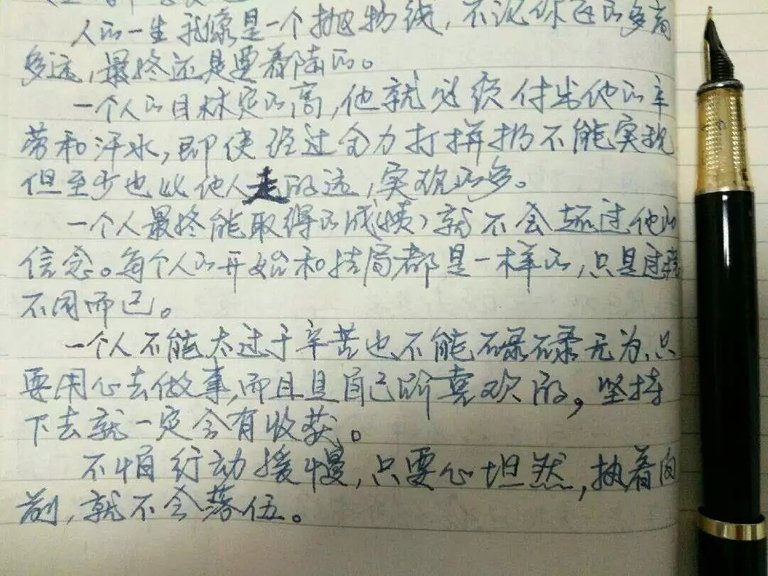 人的一生就像是一个抛物线，不论你飞的多高
多远，最终还是要着陆的。
一个人的目标定的高，他就必须付出他的辛
劳和汗水，即使经过全力打拼扔不能实现
但至少也比他人走的远，实现的多。
一个人最终能取得的成绩，就不会越过他的
信念。每个人的开始和结局都是一样的，只是过程
不同而已。
一个人不能太过于辛苦也不能碌碌无为，只
要用心去做事，而且是自己所喜欢的，坚持
下去就一定会有收获。
不怕行动援慢，只要心坦然，执着向
前，就不会落伍。